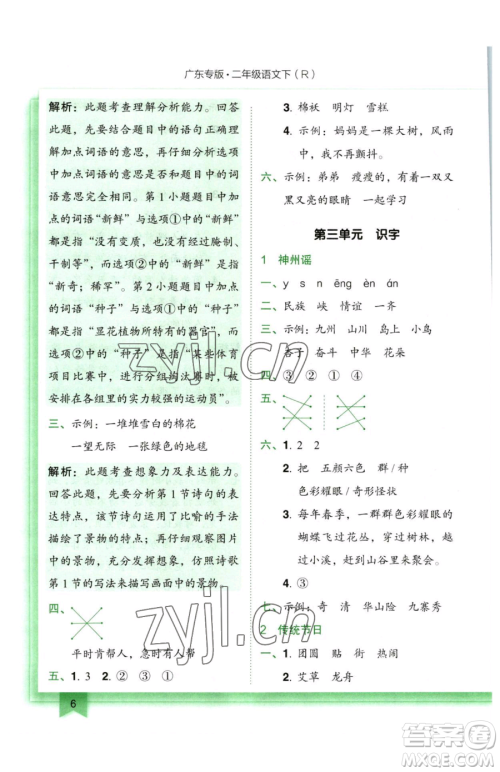 广东专版·二年级语文下（R）
解析：此题考查理解分析能力。回答
此题，先要结合题目中的语句正确理
解加点词语的意思，再仔细分析选项
中加点词语的意思是否和题目中的
意思完全相同。第1小题题目中加
点的词语“新鲜”与选项①中的“新鲜”
都是指“没有变质，也没有经过腌制、
干制等”，而选项②中的“新鲜”是指
“新奇；稀罕”。第2小题题目中加点
的词语“种子”与选项①中的“种子”
都是指“显花植物所特有的器官”，而
选项②中的“种子”是指“某些体育
项目比赛中，进行分组淘汰赛时，被
安排在各组里的实力较强的运动员”。
三、示例：一堆堆雪白的棉花
一望无际 一张绿色的地毯
解析：此题考查想象力及表达能力。
回答此题，要仔细分析第1节诗句的表
达特点，该节诗句通过比喻的手法
描绘景物的特点；再仔细观察图片
中的景物，充分发挥想象，仿照诗歌
第1节的表达特点来描写景物。
四、
平时肯帮人，急时有人帮。
五、1.3 2.② ③ ①
6
3. 棉袄 明灯 雪糕
4. 示例：妈妈是一棵大树，雨中
的我不再颤抖。
六、示例：弟弟 瘦瘦的，有着一双又
黑又亮的眼睛 一起学习
第三单元 识字
1 神州谣
一、yì s nēng èn án
二、民族 峡 情谊 一齐
三、示例：九州 山川 岛上 小鸟
杏子 奋斗 中华 花朵
四、③ ② ① ④
五、
六、1. 2 2
2. 把 五颜六色 群/种
色彩耀眼/奇形怪状
3. 每年春季，一群群色彩耀眼的
蝴蝶飞过花丛，穿过树林，越
过小溪，赶到山谷里来聚会。
4. ③
七、示例：奇 清 华山险 九寨秀
2 传统节日
一、1. 团圆 贴 街 热闹
2. 艾草 龙舟
zyjl.cn
zyjl.cn
答案
MXQE.COM